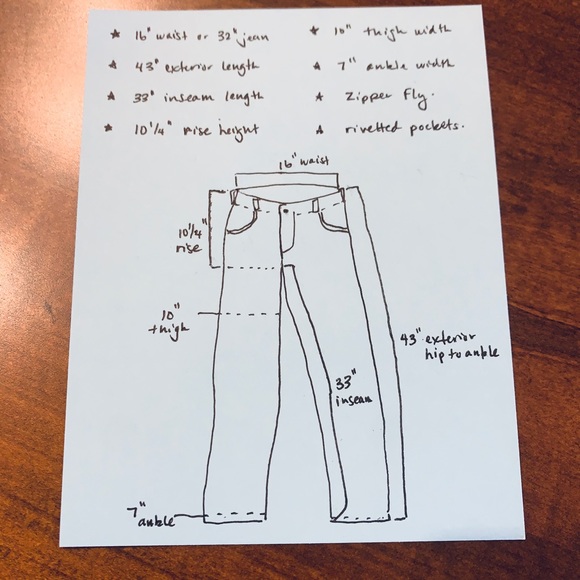 ★ 16" waist or 32" jean
★ 43" exterior length
★ 33" inseam length
★ 10 1/4" rise height
★ 10" thigh width
★ 7" ankle width
★ Zipper Fly.
★ rivetted pockets.
16" waist
10 1/4"
rise
10"
thigh
43" exterior
hip to ankle
33"
inseam
7"
ankle